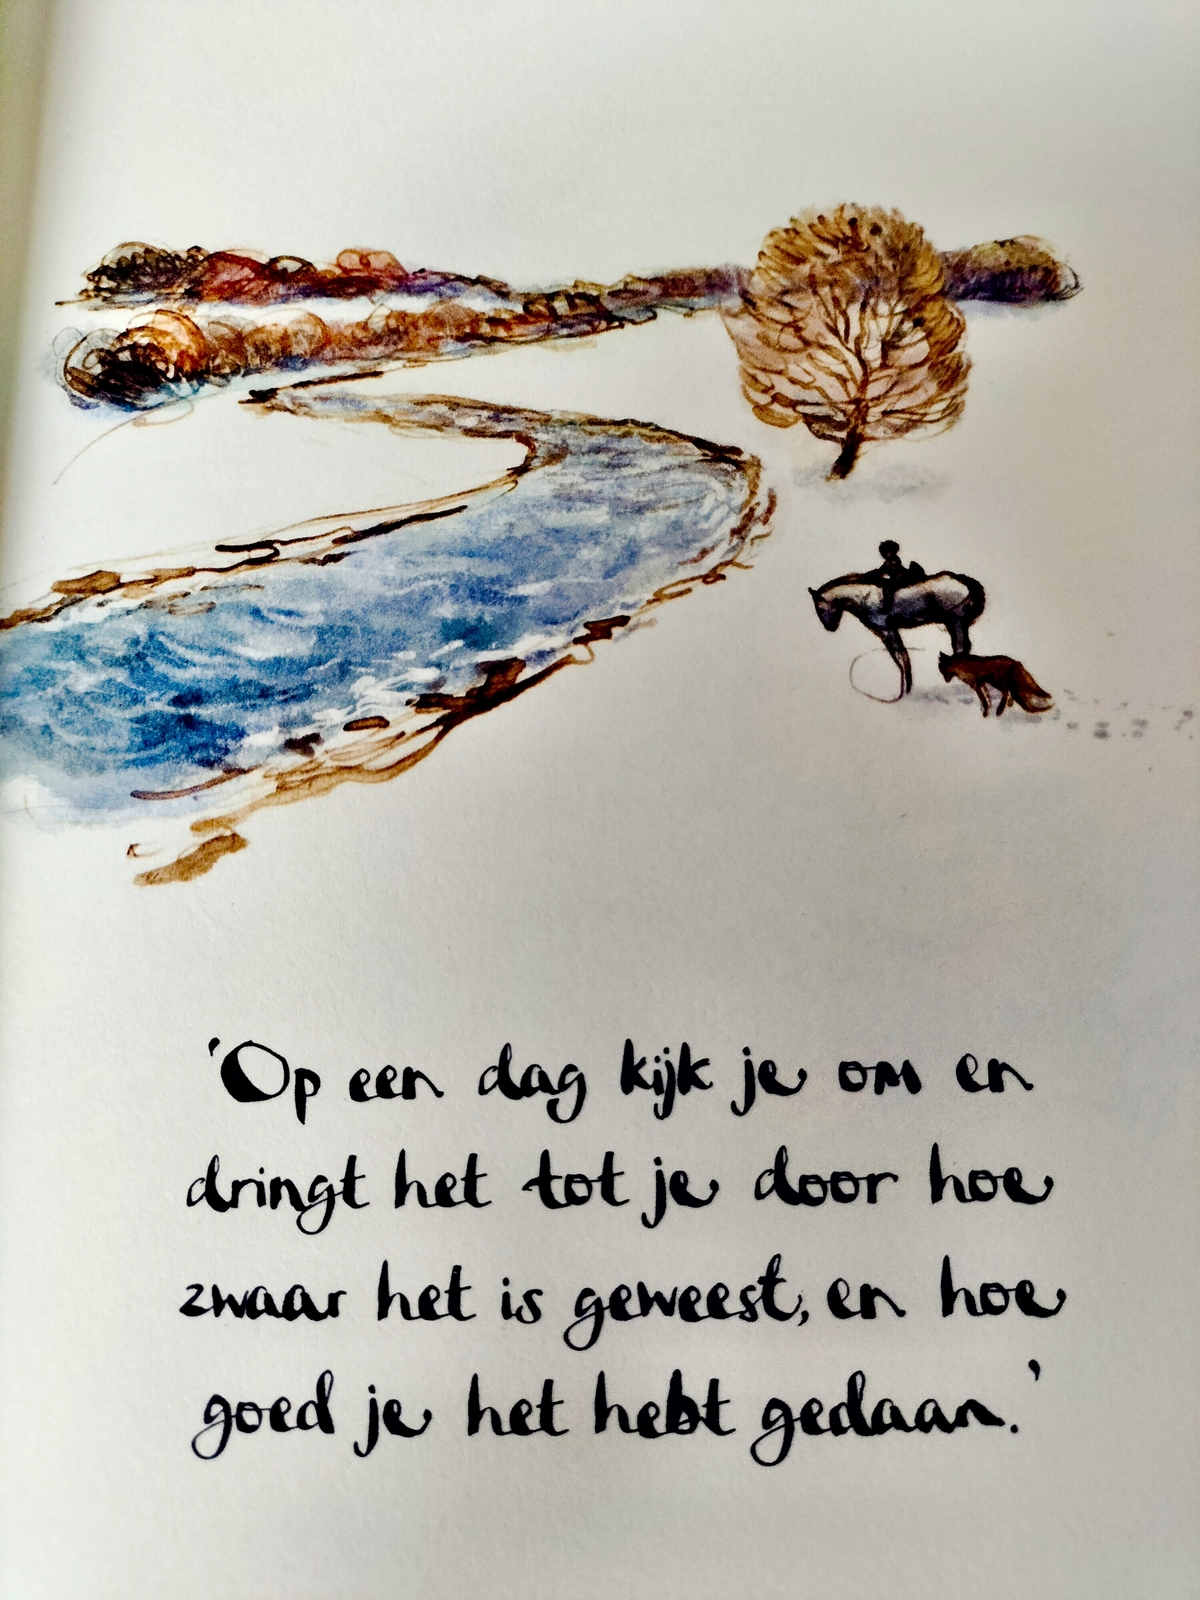 'Op een dag kijk je om en
dringt het tot je door hoe
zwaar het is geweest, en hoe
goed je het hebt gedaan.'